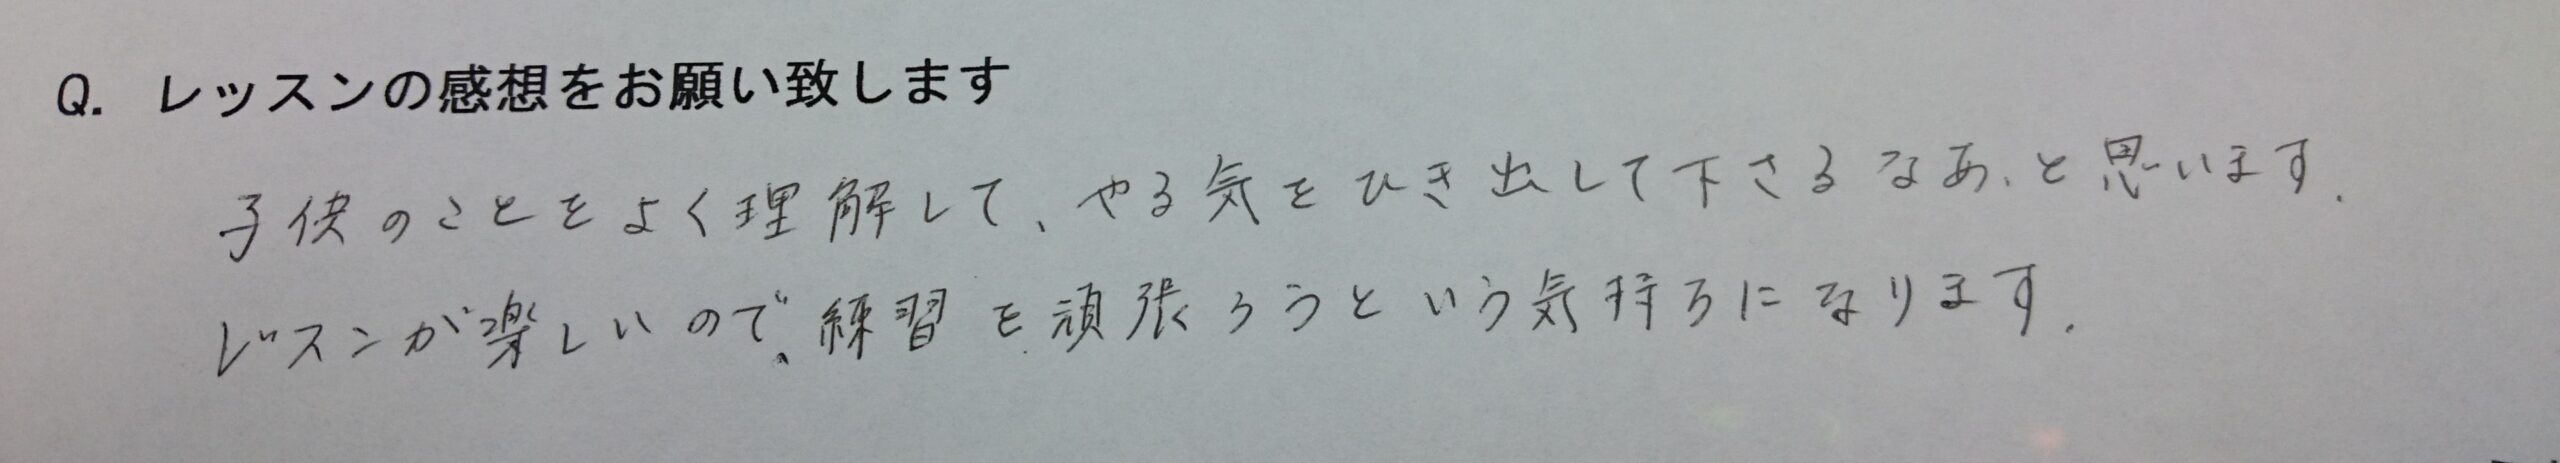 Q. レッスンの感想をお願い致します
子供のことをよく理解して、やる気をひき出して下さるなあ、と思います.
レッスンが楽しいので、練習を頑張ろうという気持ちになります.